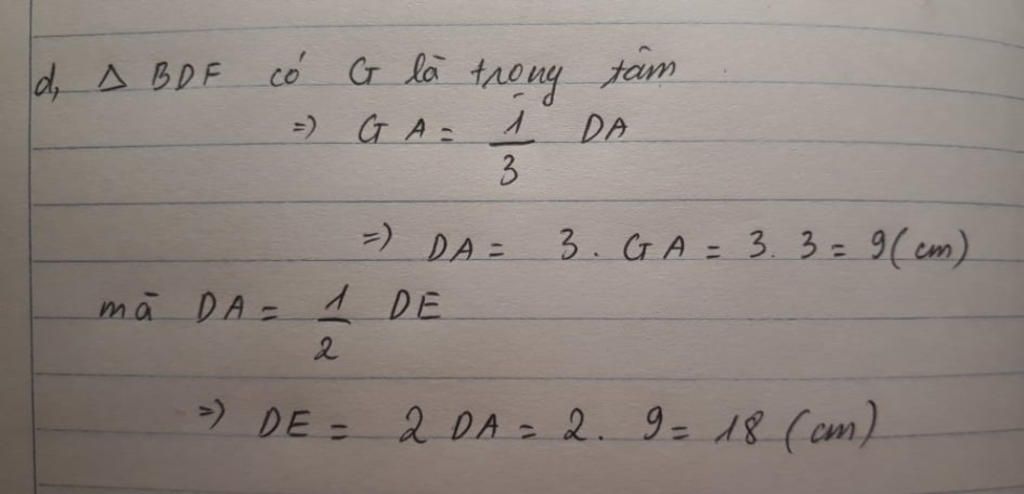 d, Δ BDF có G là trọng tâm
=) GA = 1/3 DA
=) DA = 3 . GA = 3 . 3 = 9 (cm)
mà DA = 1/2 DE
=) DE = 2 DA = 2 . 9 = 18 (cm)